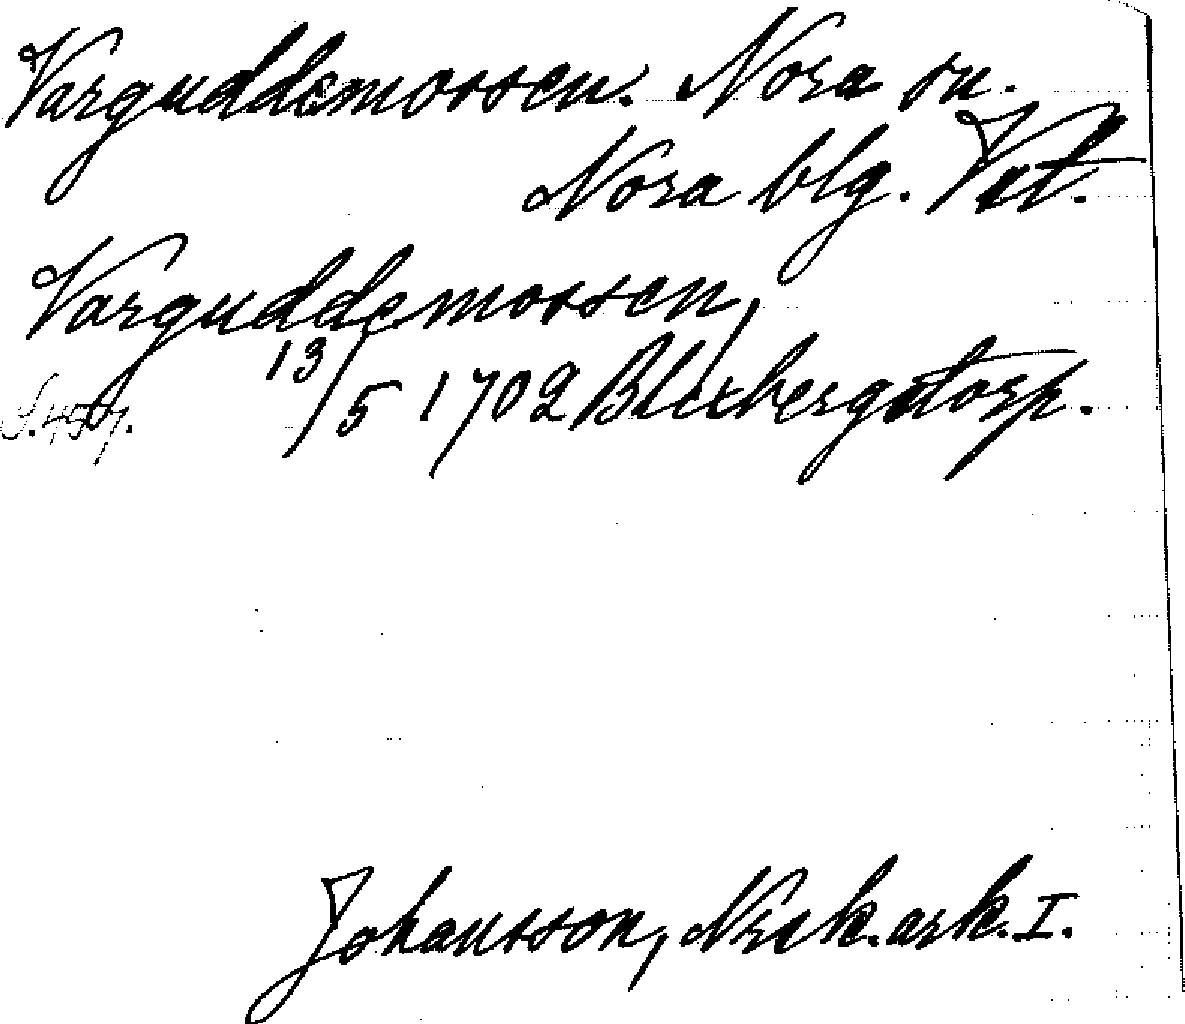 Varguddemossen. Nora sn.
Nora blg. Vstl.
Varguddemossen,
13/5 1702 Blexbergstorp.
S. 457.
Johansson, Nrak. ark. I.